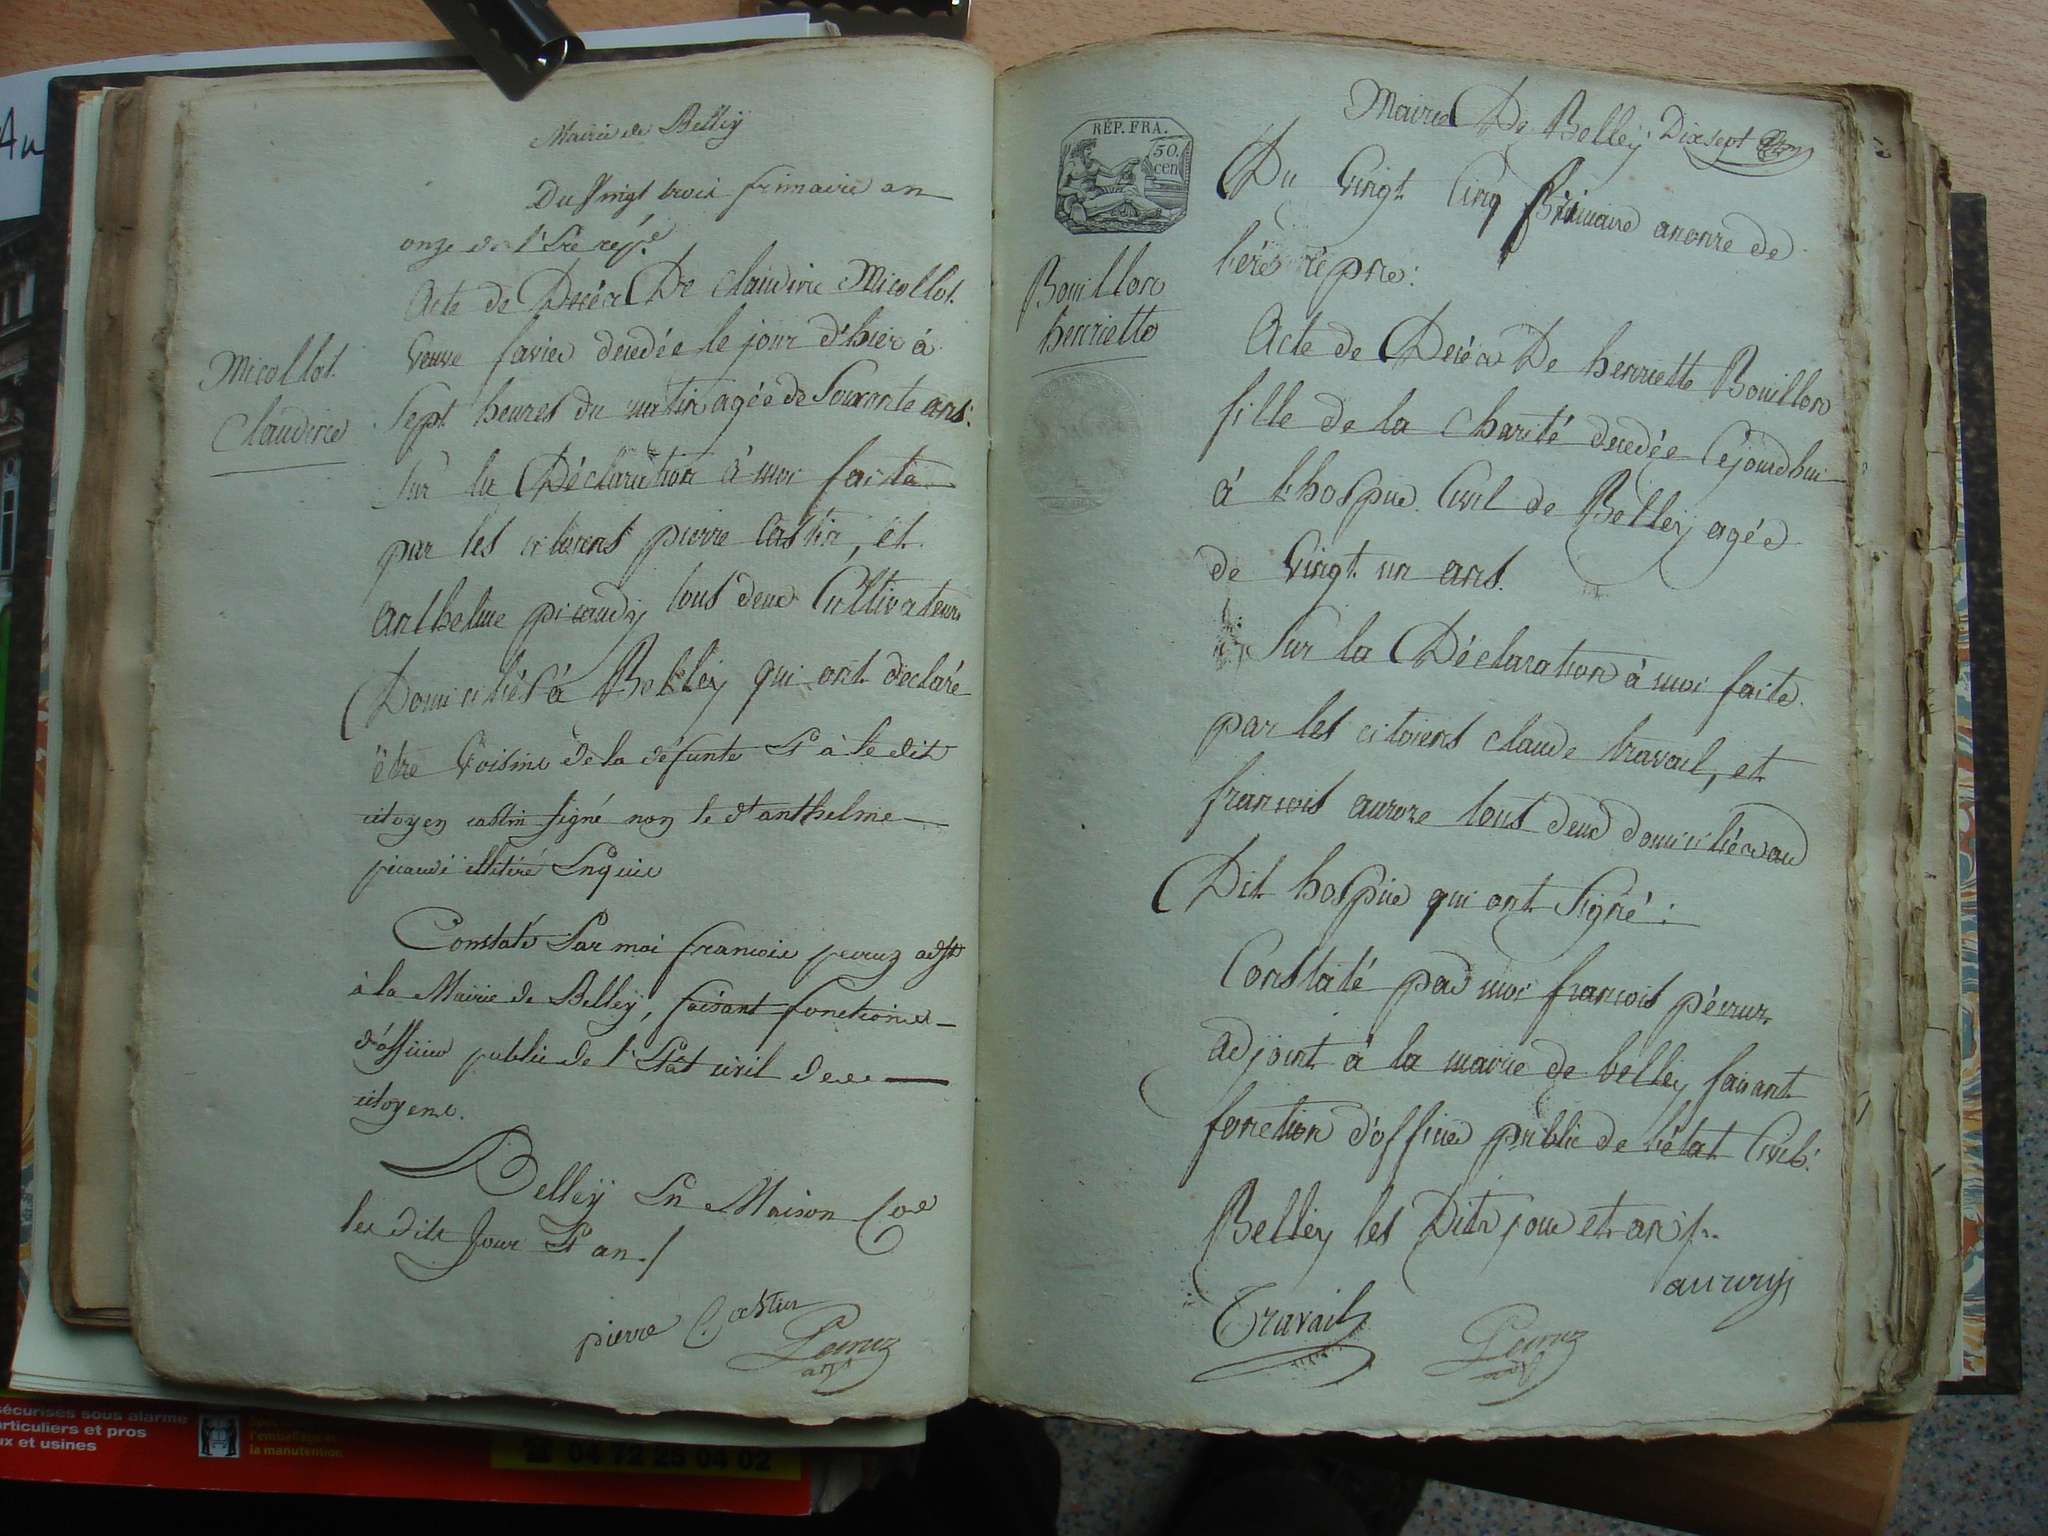 Mairie de Belley
Du Vingt trois frimaire an
onze de l'Ere rép.e
Acte de Décès De Claudine Micollot
Micollot
Claudine
Veuve favier decedée le jour d'hier à
Sept heures du matin agée de Soixante ans:
Sur la Déclaration à moi faite
par les citoiens pierre Castin, et
Anthelme picaudy tous deux Cultivateurs
Domiciliés à Belley qui ont déclaré
être Voisins de la défunte Et à le dit
citoyen castin signé non le dt anthelme
picaudi illitéré Enquis
Constaté Par moi francois peruz adjt
à la Mairie de Belley, faisant fonctions
d'officier public de l'Etat civil des
citoyens.
Belley En Maison Coe
les dits Jour Et an./
pierre Castin
Peruz
adjt
REP. FRA.
50.
cen
Mairie De Belley. Dix sept
Du Vingt Cinq frimaire an onze de
l'ére répne:
Bouillon
henriette
Acte de Décès De henriette Bouillon
fille de la Charité decedée Cejourdhui
à l'hospice Civil de Belley agée
de Vingt un ans.
Sur la Déclaration à moi faite
par les citoiens claude travail, et
francois aurore tous deux domiciliés au
Dit hospice qui ont Signé:
Constaté par moi francois péruz
adjoint à la mairie de belley faisant
fonction d'officier public de l'état Civil.
Belley les Dits jour et an /.
aurory
Travail
Peruz
adjt
sécurisés sous alarme
articuliers et pros
ux et usines
l'emballage et
la manutention
04 72 25 04 02